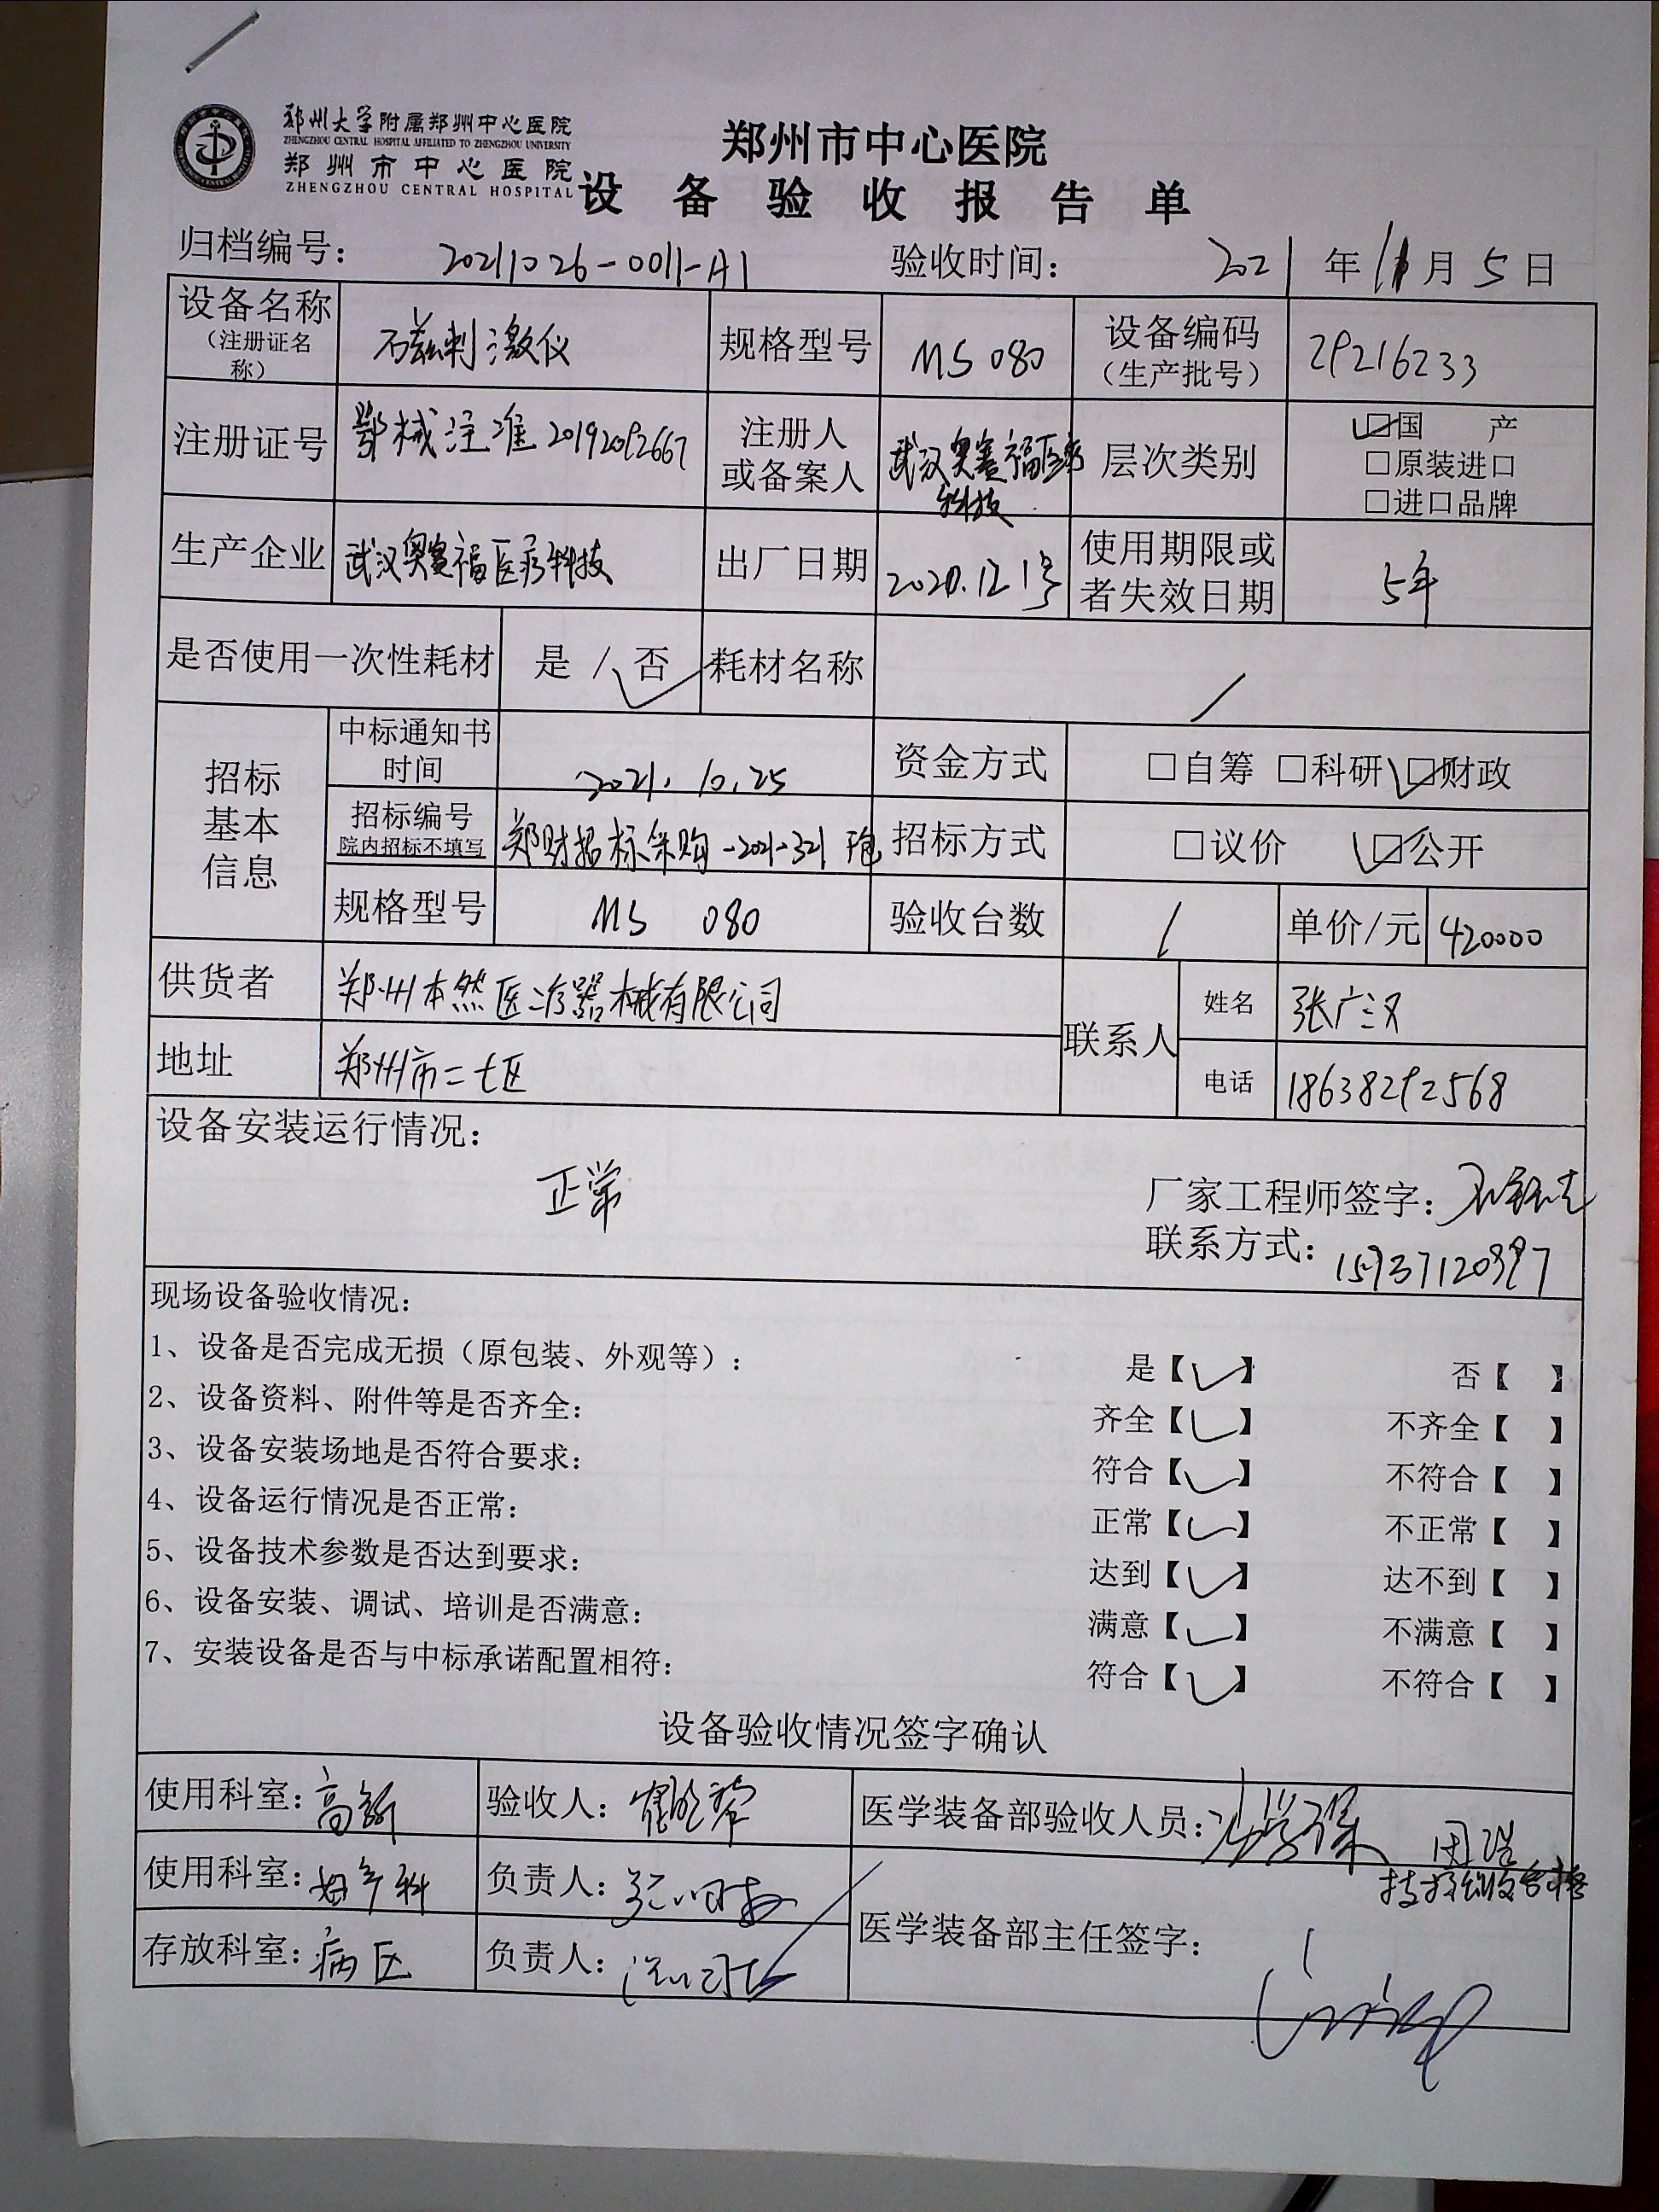 郑州大学附属郑州中心医院
ZHENGZHOU CENTRAL HOSPITAL AFFILIATED TO ZHENGZHOU UNIVERSITY
郑州市中心医院
ZHENGZHOU CENTRAL HOSPITAL
郑州市中心医院
设备验收报告单
归档编号： 20211026-0011-A1 验收时间： 2021 年 11 月 5 日
设备名称（注册证名称） 磁刺激仪 规格型号 MS 080 设备编码（生产批号） 29216233
注册证号 鄂械注准20192092667 注册人或备案人 武汉奥赛福医疗科技 层次类别 ☑国 产
□原装进口
□进口品牌
生产企业 武汉奥赛福医疗科技 出厂日期 2020.12.1号 使用期限或者失效日期 5年
是否使用一次性耗材 是 / 否 ✓ 耗材名称 /
招标基本信息
中标通知书时间 2021.10.25 资金方式 □自筹 □科研 ☑财政
招标编号 院内招标不填写 郑财招标采购-2021-321 招标方式 □议价 ☑公开
规格型号 MS 080 验收台数 1 单价/元 420000
供货者 郑州本然医疗器械有限公司 联系人 姓名 张广义
地址 郑州市二七区 电话 18638292568
设备安装运行情况：
正常
厂家工程师签字：
联系方式： 15937120997
现场设备验收情况：
1、设备是否完成无损（原包装、外观等）： 是【✓】 否【 】
2、设备资料、附件等是否齐全： 齐全【✓】 不齐全【 】
3、设备安装场地是否符合要求： 符合【✓】 不符合【 】
4、设备运行情况是否正常： 正常【✓】 不正常【 】
5、设备技术参数是否达到要求： 达到【✓】 达不到【 】
6、设备安装、调试、培训是否满意： 满意【✓】 不满意【 】
7、安装设备是否与中标承诺配置相符： 符合【✓】 不符合【 】
设备验收情况签字确认
使用科室：高新 验收人： 医学装备部验收人员：
技术验收合格
使用科室：妇产科 负责人：
存放科室：病区 负责人： 医学装备部主任签字：